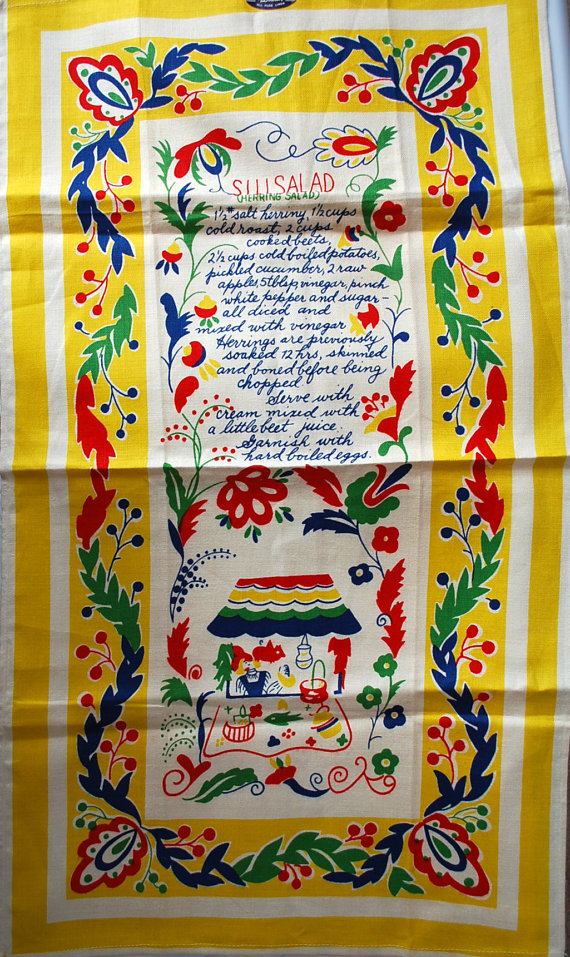 ALL PURE LINEN
SILLSALAD
(HERRING SALAD)
1½# salt herring, 1½ cups
cold roast, 2 cups
cooked beets,
2½ cups cold boiled potatoes,
pickled cucumber, 2 raw
apples, 5tblsp, vinegar, pinch
white pepper and sugar -
all diced and
mixed with vinegar
Herrings are previously
soaked 12 hrs, skinned
and boned before being
chopped
Serve with
cream mixed with
a little beet juice.
Garnish with
hard boiled eggs.